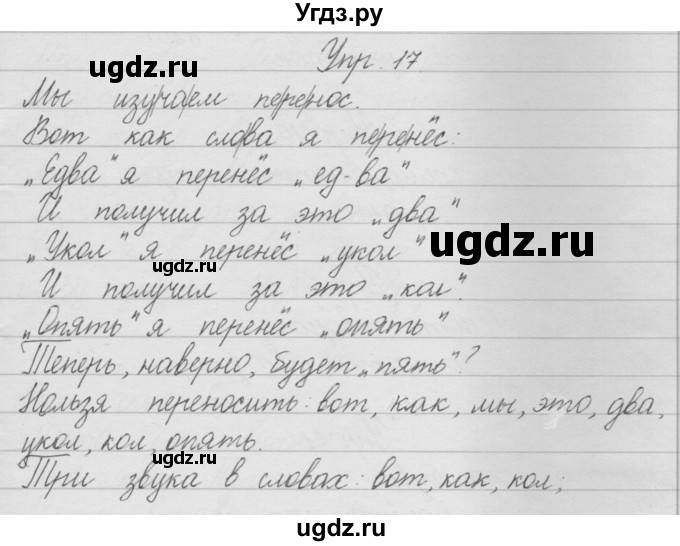 Угдз.ру
ugdz.ru
Упр. 17
Мы изу/ча/ем пе/ре/нос.
ugdz.ru
Вот как сло/ва я пе/ре/нёс:
„Едва" я перенёс „ед-ва"
И получил за это „два"
„Укол" я перенёс „укол"
ugdz.ru
ugdz.ru
И получил за это „кол".
„Опять" я перенёс „опять"
ugdz.ru
Теперь, наверно, будет „пять"?
Нельзя переносить: вот, как, мы, это, два,
укол, кол, опять.
ugdz.ru
Три звука в словах: вот, как, кол;
ugdz.ru